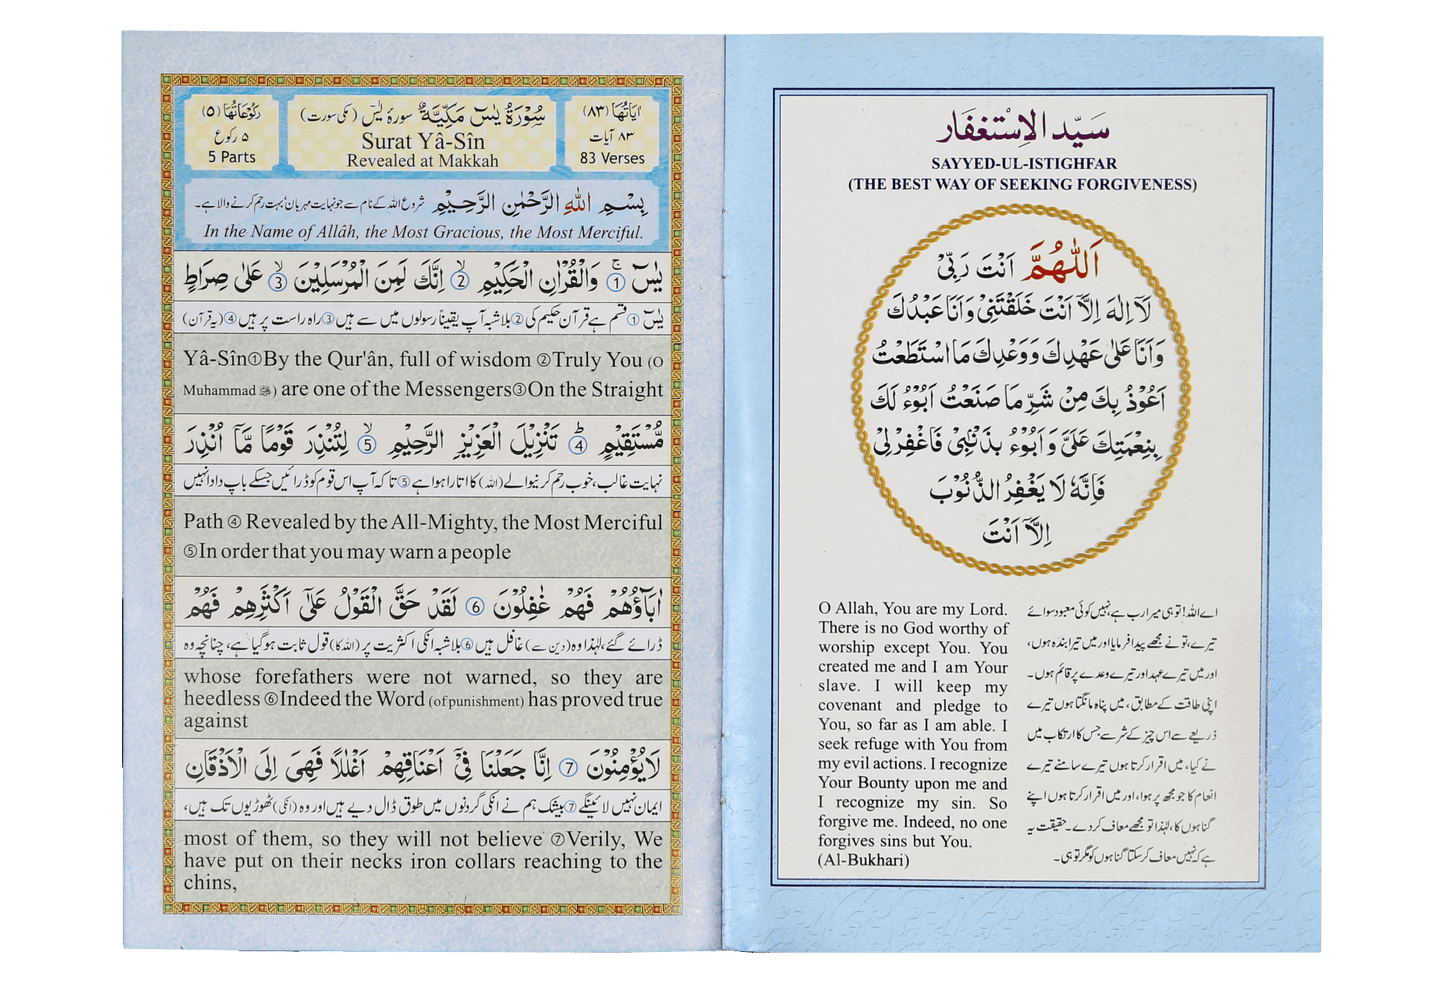 رَكُوْعَاتُهَا (٥)
٥ رکوع
5 Parts
سُوْرَةُ يٰسٓ مَكِّيَّةٌ سورۂ یٰسٓ (مکی سورت)
Surat Yâ-Sîn
Revealed at Makkah
اٰيَاتُهَا (٨٣)
٨٣ آیات
83 Verses
بِسْمِ اللّٰهِ الرَّحْمٰنِ الرَّحِيْمِ شروع اللہ کے نام سے جو نہایت مہربان بہت رحم کرنے والا ہے۔
In the Name of Allâh, the Most Gracious, the Most Merciful.
يٰسٓ ۚ ① وَالْقُرْاٰنِ الْحَكِيْمِ ۙ ② اِنَّكَ لَمِنَ الْمُرْسَلِيْنَ ۙ ③ عَلٰى صِرَاطٍ
یٰسٓ ① قسم ہے قرآن حکیم کی ② بلاشبہ آپ یقیناً رسولوں میں سے ہیں ③ راہ راست پر ہیں ④ (یہ قرآن)
Yâ-Sîn①By the Qur'ân, full of wisdom ②Truly You (O
Muhammad ﷺ) are one of the Messengers③On the Straight
مُّسْتَقِيْمٍ ؕ ④ تَنْزِيْلَ الْعَزِيْزِ الرَّحِيْمِ ۙ ⑤ لِتُنْذِرَ قَوْمًا مَّاۤ اُنْذِرَ
نہایت غالب، خوب رحم کرنیوالے (اللہ) کا اتارا ہوا ہے ⑤ تا کہ آپ اس قوم کو ڈرائیں جسکے باپ دادا نہیں
Path ④ Revealed by the All-Mighty, the Most Merciful
⑤In order that you may warn a people
اٰبَآؤُهُمْ فَهُمْ غٰفِلُوْنَ ⑥ لَقَدْ حَقَّ الْقَوْلُ عَلٰۤى اَكْثَرِهِمْ فَهُمْ
ڈرائے گئے، لہٰذا وہ (دین سے) غافل ہیں ⑥ بلاشبہ انکی اکثریت پر (اللہ کا) قول ثابت ہوگیا ہے، چنانچہ وہ
whose forefathers were not warned, so they are
heedless ⑥Indeed the Word (of punishment) has proved true
against
لَا يُؤْمِنُوْنَ ⑦ اِنَّا جَعَلْنَا فِيْۤ اَعْنَاقِهِمْ اَغْلٰلًا فَهِىَ اِلَى الْاَذْقَانِ
ایمان نہیں لائینگے ⑦ بیشک ہم نے انکی گردنوں میں طوق ڈال دیے ہیں اور وہ (انکی) ٹھوڑیوں تک ہیں،
most of them, so they will not believe ⑦Verily, We
have put on their necks iron collars reaching to the
chins,
سَيِّدُ الْاِسْتِغْفَار
SAYYED-UL-ISTIGHFAR
(THE BEST WAY OF SEEKING FORGIVENESS)
اَللّٰهُمَّ اَنْتَ رَبِّىْ
لَآ اِلٰهَ اِلَّآ اَنْتَ خَلَقْتَنِىْ وَاَنَا عَبْدُكَ
وَاَنَا عَلٰى عَهْدِكَ وَوَعْدِكَ مَا اسْتَطَعْتُ
اَعُوْذُ بِكَ مِنْ شَرِّ مَا صَنَعْتُ اَبُوْءُ لَكَ
بِنِعْمَتِكَ عَلَىَّ وَاَبُوْءُ بِذَنْۢبِىْ فَاغْفِرْلِىْ
فَاِنَّهٗ لَا يَغْفِرُ الذُّنُوْبَ
اِلَّآ اَنْتَ
O Allah, You are my Lord.
There is no God worthy of
worship except You. You
created me and I am Your
slave. I will keep my
covenant and pledge to
You, so far as I am able. I
seek refuge with You from
my evil actions. I recognize
Your Bounty upon me and
I recognize my sin. So
forgive me. Indeed, no one
forgives sins but You.
(Al-Bukhari)
اے اللہ! تو ہی میرا رب ہے، نہیں کوئی معبود سوائے
تیرے، تو نے مجھے پیدا فرمایا اور میں تیرا بندہ ہوں،
اور میں تیرے عہد اور تیرے وعدے پر قائم ہوں۔
اپنی طاقت کے مطابق، میں پناہ مانگتا ہوں تیرے
ذریعے سے اس چیز کے شر سے جس کا ارتکاب میں
نے کیا، میں اقرار کرتا ہوں تیرے سامنے تیرے
انعام کا جو مجھ پر ہوا، اور میں اقرار کرتا ہوں اپنے
گناہوں کا، لہٰذا تو مجھے معاف کر دے۔ حقیقت یہ
ہے کہ نہیں معاف کر سکتا گناہوں کو مگر تو ہی۔